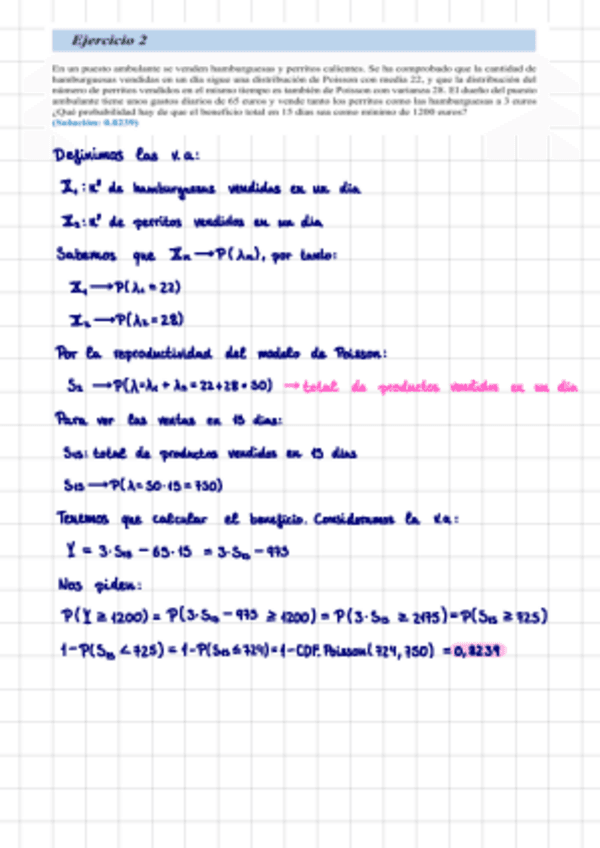 Ejercicio 2
En un puesto ambulante se venden hamburguesas y perritos calientes. Se ha comprobado que la cantidad de
hamburguesas vendidas en un día sigue una distribución de Poisson con media 22, y que la distribución del
número de perritos vendidos en el mismo tiempo es también de Poisson con varianza 28. El dueño del puesto
ambulante tiene unos gastos diarios de 65 euros y vende tanto los perritos como las hamburguesas a 3 euros
¿Qué probabilidad hay de que el beneficio total en 15 días sea como mínimo de 1200 euros?
(Solución: 0.8239)
Definimos las v.a:
X₁: nº de hamburguesas vendidas en un día
X₂: nº de perritos vendidos en un día
Sabemos que Xₙ → P(λₙ), por tanto:
X₁ → P(λ₁ = 22)
X₂ → P(λ₂ = 28)
Por la reproductividad del modelo de Poisson:
S₂ → P(λ = λ₁ + λ₂ = 22 + 28 = 50) → total de productos vendidos en un día
Para ver las ventas en 15 días:
S₁₅: total de productos vendidos en 15 días
S₁₅ → P(λ = 50·15 = 750)
Tenemos que calcular el beneficio. Consideramos la v.a:
Y = 3·S₁₅ − 65·15 = 3·S₁₅ − 975
Nos piden:
P(Y ≥ 1200) = P(3·S₁₅ − 975 ≥ 1200) = P(3·S₁₅ ≥ 2175) = P(S₁₅ ≥ 725)
1 − P(S₁₅ < 725) = 1 − P(S₁₅ ≤ 724) = 1 − CDF.Poisson(724, 750) = 0,8239